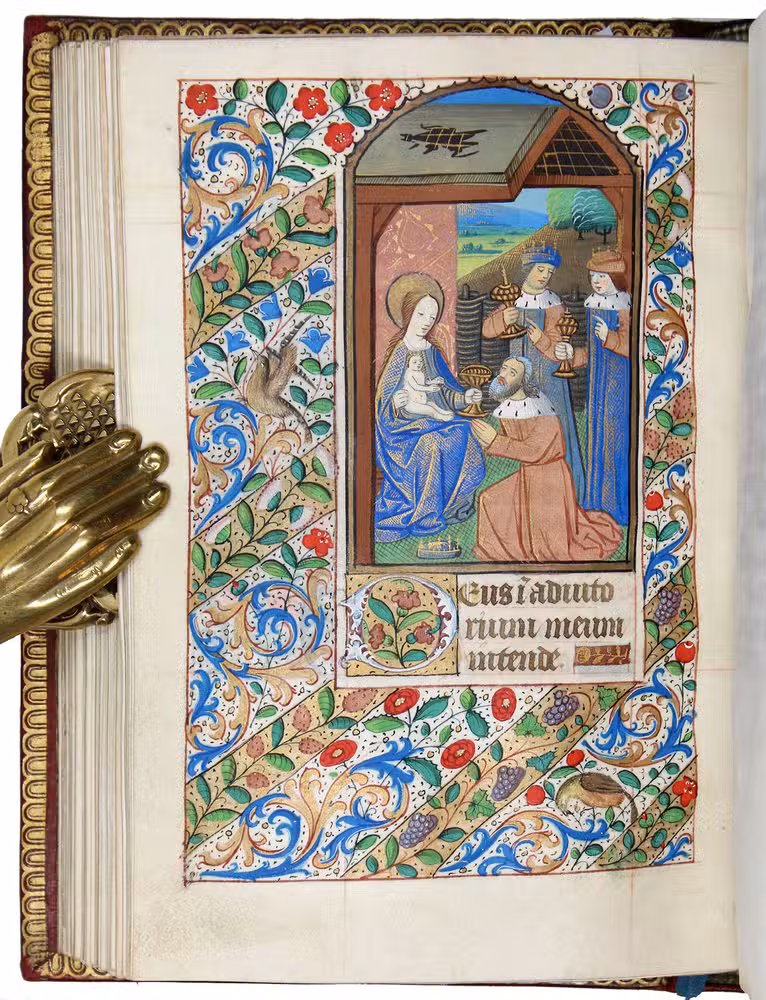 Deus ī adiuto
rium meum
intende.